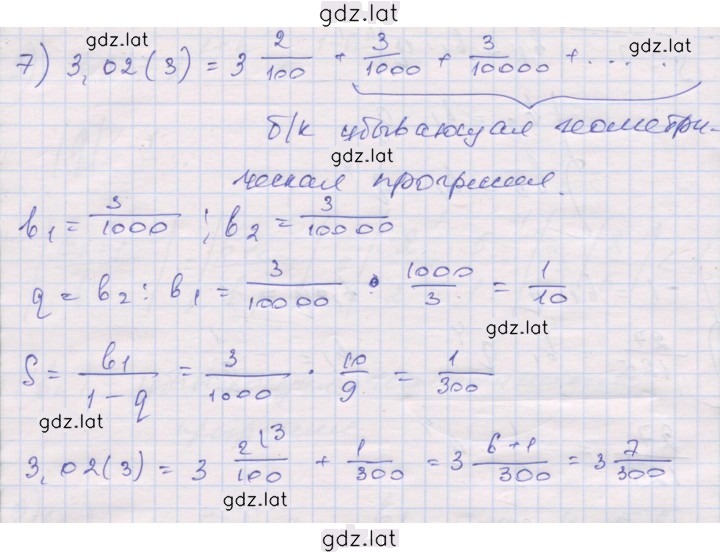 gdz.lat
gdz.lat
gdz.lat
7) 3,02(3) = 3 2/100 + 3/1000 + 3/10000 + .....
б/к убывающая геометри-
gdz.lat
ческая прогрессия.
b₁ = 3/1000 ; b₂ = 3/10000
q = b₂ : b₁ = 3/10000 · 1000/3 = 1/10
gdz.lat
S = b₁/(1-q) = 3/1000 · 10/9 = 1/300
gdz.lat
3,02(3) = 3 2⁽³/100 + 1/300 = 3 (6+1)/300 = 3 7/300
gdz.lat
gdz.lat